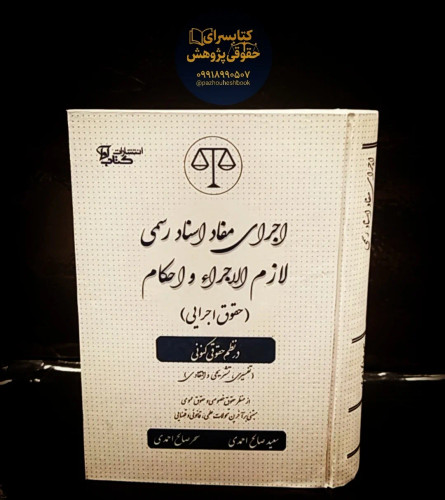 کتابسرای
حقوقی پژوهش
۰۹۹۱۸۹۹۰۵۰۷
@pazhouheshbook
انتشارات
کتاب آوا
اجرای مفاد اسناد رسمی
لازم الاجراء و احکام
(حقوق اجرایی)
در نظم حقوقی کنونی
(تفسیری، تشریحی و انتقادی)
از منظر حقوق خصوصی و حقوق عمومی
مبتنی بر آخرین تحولات علمی، قانونی و قضایی
سعید صالح احمدی
سحر صالح احمدی
اجرای مفاد اسناد رسمی